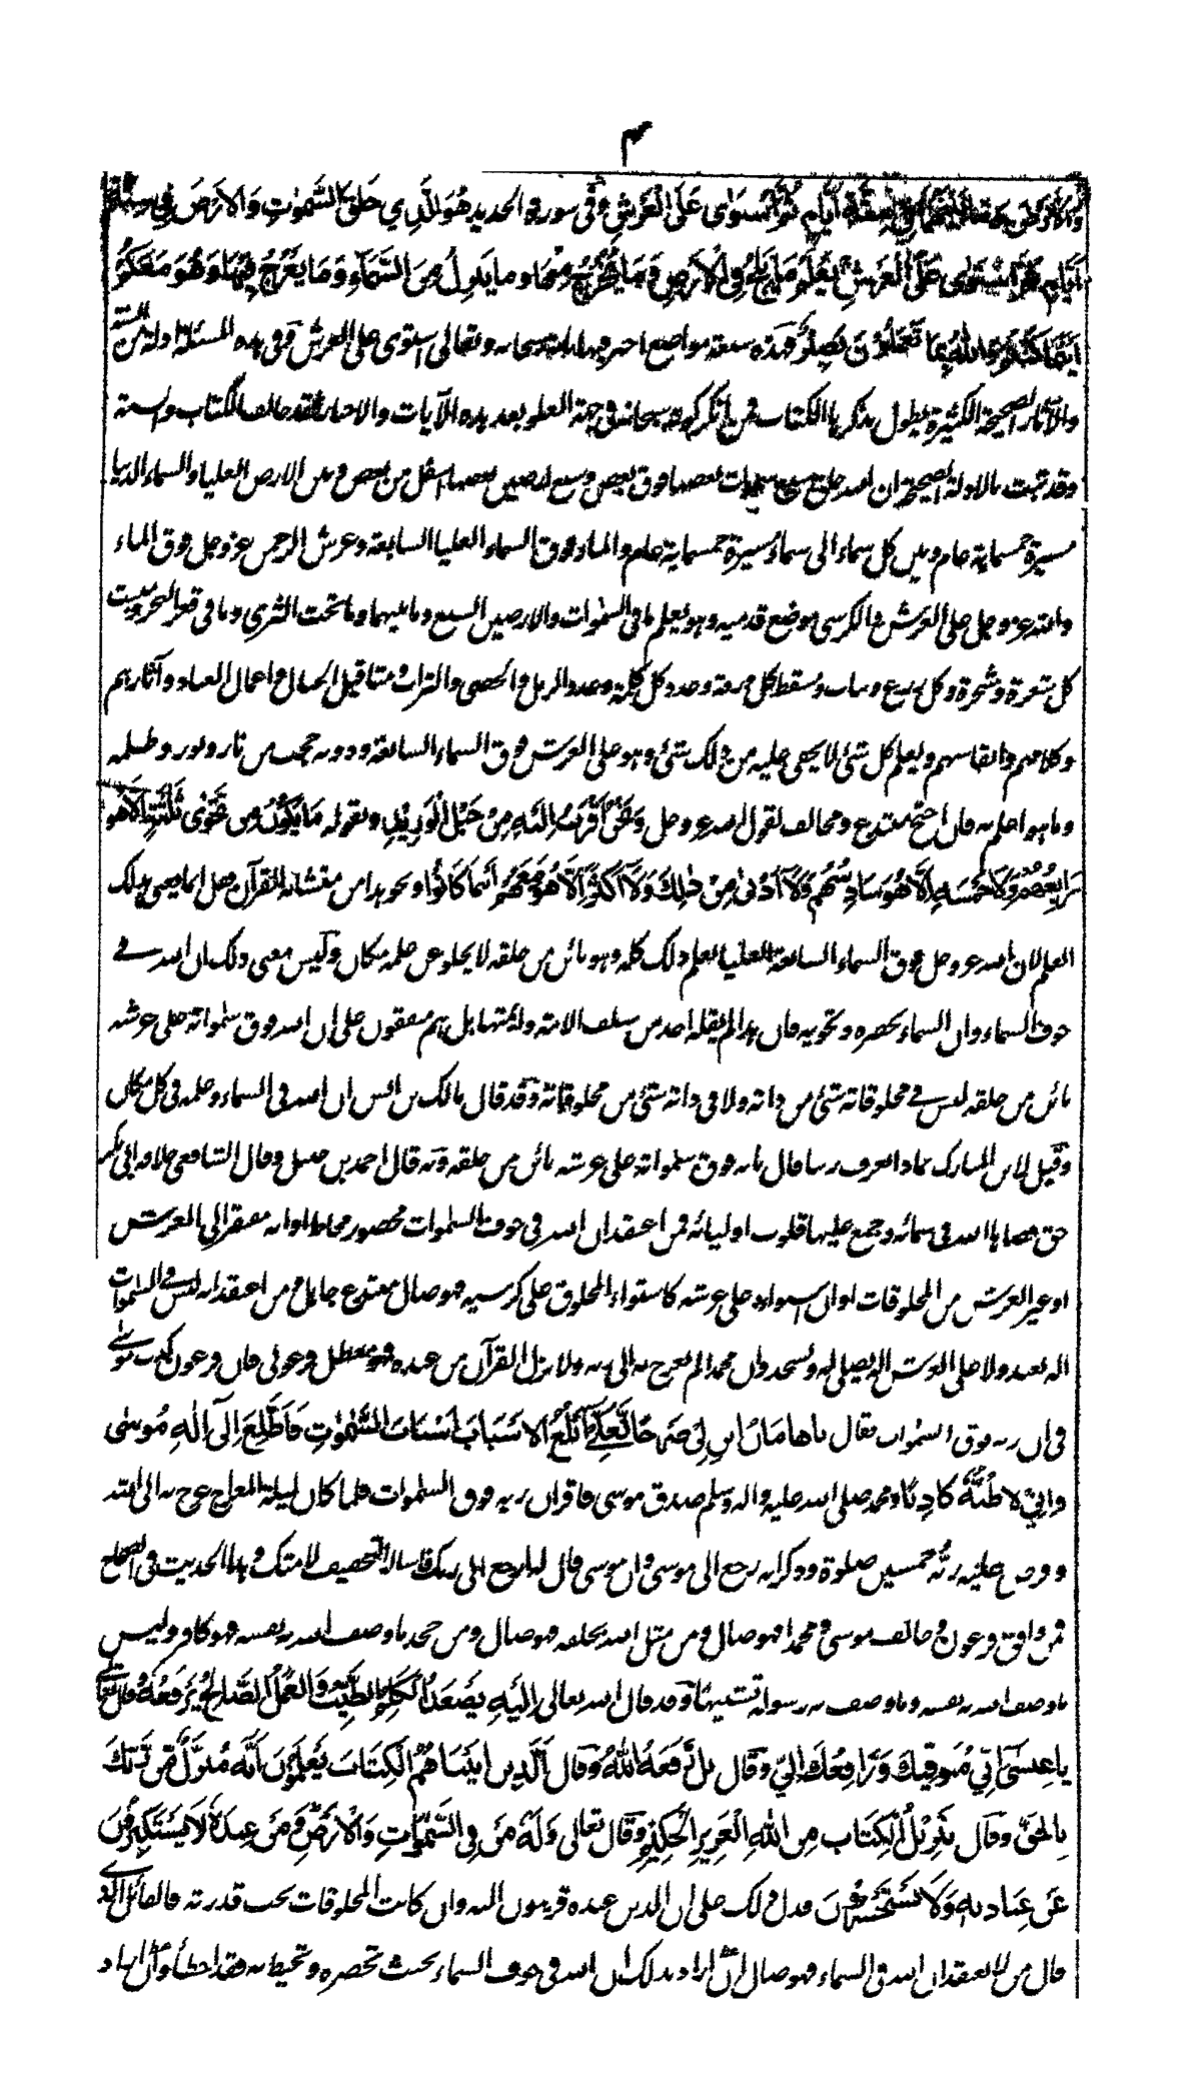 ٣
والارض وما بينهما في ستة ايام ثُمَّ اسْتَوٰى عَلَى الْعَرْشِ وَفي سورة الحديد هُوَ الَّذِي خَلَقَ السَّمٰوٰتِ وَالْاَرْضَ فِي سِتَّةِ
اَيَّامٍ ثُمَّ اسْتَوٰى عَلَى الْعَرْشِ يَعْلَمُ مَا يَلِجُ فِي الْاَرْضِ وَمَا يَخْرُجُ مِنْهَا وما يَنْزِلُ مِنَ السَّمَآءِ وَمَا يَعْرُجُ فِيْهَا وَهُوَ مَعَكُمْ
اَيْنَمَا كُنْتُمْ وَاللّٰهُ بِمَا تَعْمَلُوْنَ بَصِيْرٌ فهذه سبعة مواضع اخبر فيها الله سبحانه وتعالى استوى على العرش وفي هذه المسئلة ادلة من السنة
والآثار الصحيحة الكثيرة يطول بذكرها الكتاب فمن انكر كونه سبحانه في جهة العلو بعد هذه الآيات والاحاديث فقد خالف الكتاب والسنة
وقد ثبتت بالادلة الصحيحة ان الله خلق سبع سموات بعضها فوق بعض وسبع ارضين بعضها اسفل من بعض وبين الارض العليا والسماء الدنيا
مسيرة خمسماية عام وبين كل سماء الى سماء مسيرة خمسماية عام والماء فوق السماء العليا السابعة وعرش الرحمن عز وجل فوق الماء
والله عز وجل على العرش والكرسي موضع قدميه وهو يعلم ما في السموات والارضين السبع وما بينهما وما تحت الثرى وما في قعر البحر ومنبت
كل شعرة وشجرة وكل زرع ونبات ومسقط كل ورقة وعدد كل كلمة وعدد الرمل والحصى والتراب ومثاقيل الجبال واعمال العباد وآثارهم
وكلامهم وانفاسهم ويعلم كل شئ لا يخفى عليه من ذلك شئ وهو على العرش فوق السماء السابعة ودونه حجب من نار ونور وظلمة
وما هو اعلم به فان احتج مبتدع ومخالف بقول الله عز وجل وَنَحْنُ اَقْرَبُ اِلَيْهِ مِنْ حَبْلِ الْوَرِيْدِ وبقوله مَا يَكُوْنُ مِنْ نَجْوٰى ثَلٰثَةٍ اِلَّا هُوَ
رَابِعُهُمْ وَلَا خَمْسَةٍ اِلَّا هُوَ سَادِسُهُمْ وَلَا اَدْنٰى مِنْ ذٰلِكَ وَلَا اَكْثَرَ اِلَّا هُوَ مَعَهُمْ اَيْنَمَا كَانُوْا ونحو هذا من متشابه القرآن فقل انما يعني بذلك
العلم لان الله عز وجل فوق السماء السابعة العليا يعلم ذلك كله وهو بائن من خلقه لا يخلو من علمه مكان وليس معنى ذلك ان الله في
جوف السماء وان السماء تحصره وتحويه فان هذا لم يقله احد من سلف الامة وائمتها بل هم متفقون على ان الله فوق سمواته على عرشه
بائن من خلقه ليس في مخلوقاته شئ من ذاته ولا في ذاته شئ من مخلوقاته وقد قال مالك بن انس ان الله في السماء وعلمه في كل مكان
وقيل لابن المبارك بماذا نعرف ربنا قال بانه فوق سمواته على عرشه بائن من خلقه وبه قال احمد بن حنبل وقال الشافعي خلافة ابي بكر
حق قضاها الله في سمائه وجمع عليها قلوب اوليائه فمن اعتقد ان الله في جوف السموات محصور محاط او انه مفتقر الى العرش
او غير العرش من المخلوقات او ان استواءه على عرشه كاستواء المخلوق على كرسيه فهو ضال مبتدع جاهل ومن اعتقد انه ليس في السموات
اله يعبد ولا على العرش اله يصلى له ويسجد وان محمدا لم يعرج به الى ربه ولا نزل القرآن من عنده فهو معطل فرعوني فان فرعون كذب موسى
في ان ربه فوق السموات فقال يا هَامَانُ ابْنِ لِيْ صَرْحًا لَّعَلِّيْ اَبْلُغُ الْاَسْبَابَ اَسْبَابَ السَّمٰوٰتِ فَاَطَّلِعَ اِلٰى اِلٰهِ مُوْسٰى
وَاِنِّيْ لَاَظُنُّهٗ كَاذِبًا ومحمد صلى الله عليه واله وسلم صدق موسى فاقر ان ربه فوق السموات فلما كان ليلة المعراج عرج به الى الله
وفرض عليه ربه خمسين صلوة وذكر انه رجع الى موسى وان موسى قال له ارجع الى ربك فاساله التخفيف لامتك وهذا الحديث في الصحاح
فمن وافق فرعون وخالف موسى ومحمدا فهو ضال ومن مثل الله بخلقه فهو ضال ومن جحد ما وصف الله به نفسه فهو كافر وليس
ما وصف الله به نفسه وما وصف به رسوله تشبيها وقد قال الله تعالى اِلَيْهِ يَصْعَدُ الْكَلِمُ الطَّيِّبُ وَالْعَمَلُ الصَّالِحُ يَرْفَعُهٗ وقال تعالى
يَا عِيْسٰى اِنِّيْ مُتَوَفِّيْكَ وَرَافِعُكَ اِلَيَّ وقال بَلْ رَّفَعَهُ اللّٰهُ وقال الَّذِيْنَ اٰتَيْنَاهُمُ الْكِتَابَ يَعْلَمُوْنَ اَنَّهٗ مُنَزَّلٌ مِّنْ رَّبِّكَ
بِالْحَقِّ وقال تَنْزِيْلُ الْكِتَابِ مِنَ اللّٰهِ الْعَزِيْزِ الْحَكِيْمِ وقال تعالى وَلَهٗ مَنْ فِي السَّمٰوَاتِ وَالْاَرْضِ وَمَنْ عِنْدَهٗ لَا يَسْتَكْبِرُوْنَ
عَنْ عِبَادَتِهٖ وَلَا يَسْتَحْسِرُوْنَ فدل ذلك على ان الذين عنده قريبون اليه وان كانت المخلوقات تحت قدرته فالقائل الذي
قال من لا يعتقد ان الله في السماء فهو ضال ان اراد بذلك ان الله في جوف السماء بحيث تحصره وتحيط به فقد اخطأ وان اراد